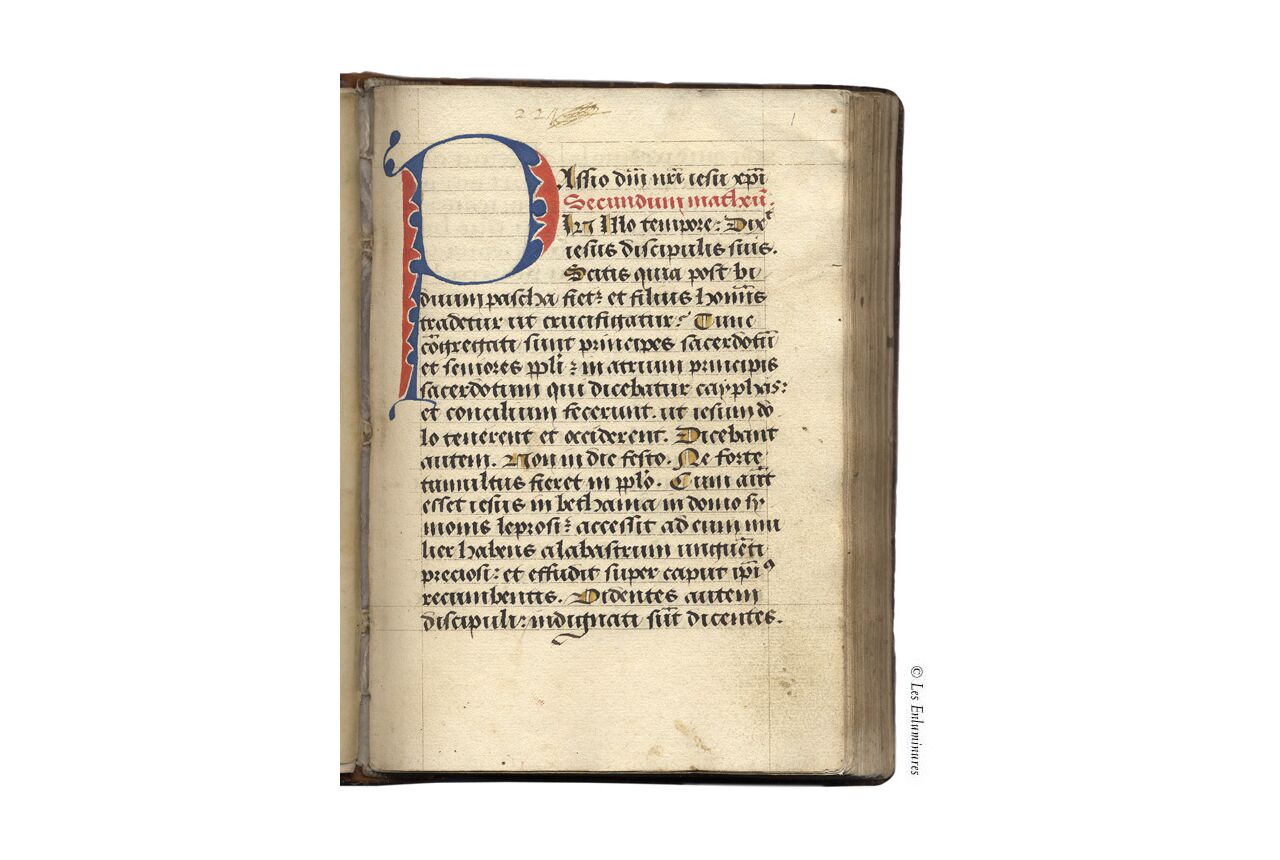 22
1
PAssio dñi nr̄i iesu xp̄i
Secundum matheū.
In Illo tempore: Dixᵗ
iesus discipulis suis.
Scitis quia post bi
duum pascha fiet: et filius hom̄is
tradetur ut crucifigatur: Tunc
cōgregati sunt principes sacerdotū
et seniores ppl̄i: in atrium principis
sacerdotum qui dicebatur cayphas:
et concilium fecerunt. ut iesum do
lo tenerent et occiderent. Dicebant
autem. Non in die festo. Ne forte
tumultus fieret in ppl̄o. Cum aūt
esset iesus in bethania in domo sy
monis leprosi: accessit ad eum mu
lier habens alabastrum unguēti
preciosi: et effudit super caput ip̄iꝰ
recumbentis. Videntes autem
discipuli: indignati sūt dicentes.
© Les Enluminures